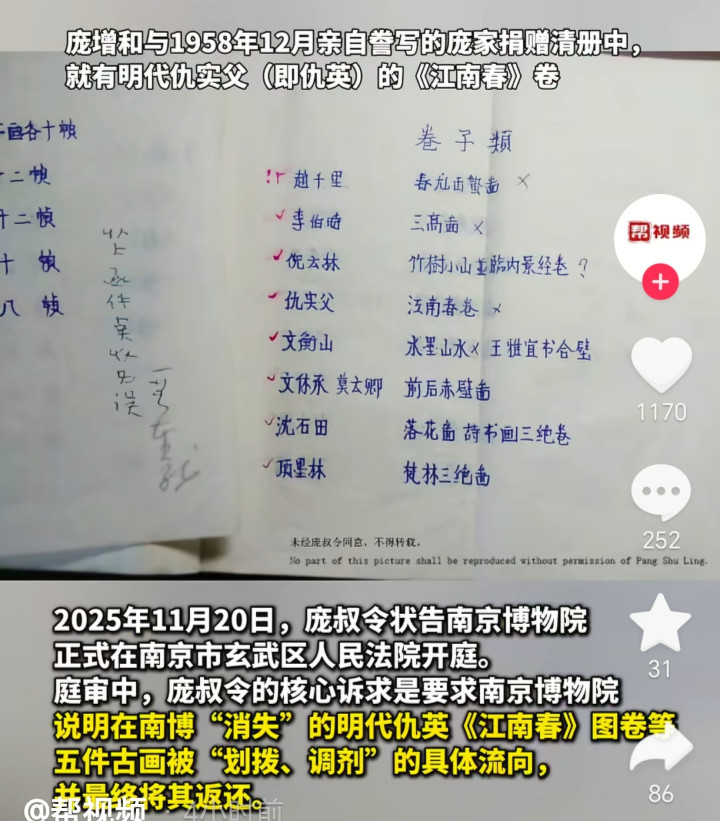 庞增和与1958年12月亲自誊写的庞家捐赠清册中，
就有明代仇实父（即仇英）的《江南春》卷
画各十帧
十二帧
十二帧
十帧
八帧
卷子类
趙千里 春龙出蟄畵 ×
李伯時 三高畵 ×
倪云林 竹樹小山並臨内景经卷 ?
仇实父 江南春卷 ×
文衡山 水墨山水× 王雅宜书合壁
文休承 莫云卿 前后赤壁畵
沈石田 落花畵 詩书画三绝卷
项墨林 梵林三绝畵
未经庞叔令同意，不得转载。
No part of this picture shall be reproduced without permission of Pang Shu Ling.
帮视频
1170
252
31
86
2025年11月20日，庞叔令状告南京博物院
正式在南京市玄武区人民法院开庭。
庭审中，庞叔令的核心诉求是要求南京博物院
说明在南博“消失”的明代仇英《江南春》图卷等
五件古画被“划拨、调剂”的具体流向，
并最终将其返还。
@帮视频 · 4小时前